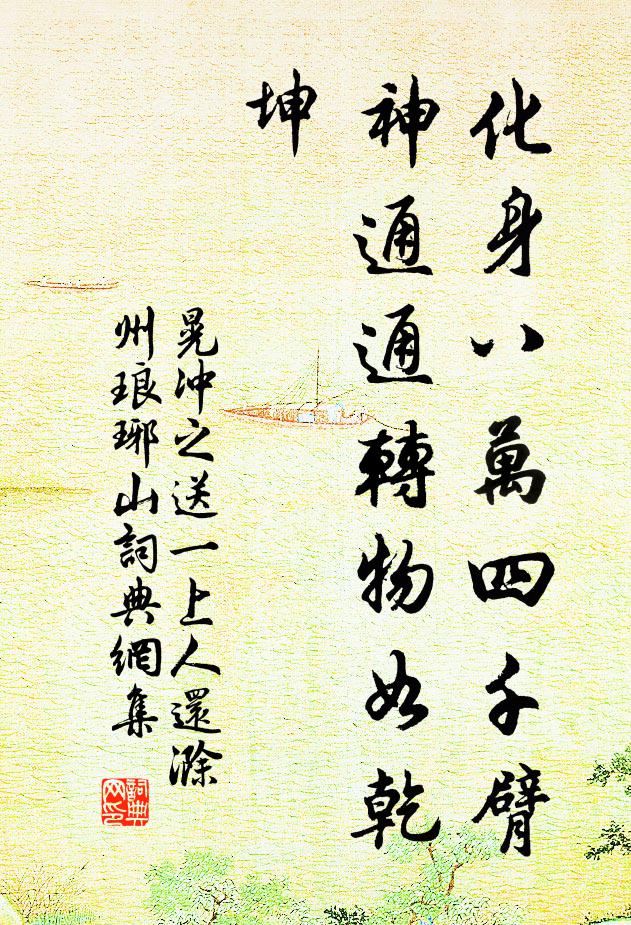 化身八萬四千臂
神通通轉物如乾
坤
晁冲之送一上人還滁
州琅琊山詞典網集
詞典
网印